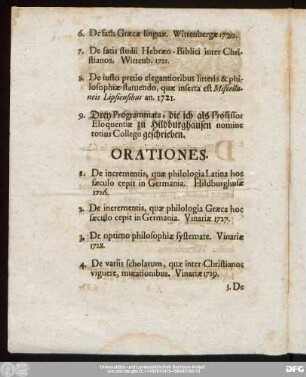 6. De fatis Græcæ linguæ. Wittenbergæ 1720.
7. De fatis studii Hebræo-Biblici inter Chri-
stianos. Wittenb. 1721.
8. De iusto pretio elegantioribus litteris & phi-
losophiæ statuendo, quæ inserta est Miscella-
neis Lipsiensibus an. 1721.
9. Drey Programmata, die ich als Professor
Eloquentiæ zu Hildburghausen nomine
totius Collegii geschrieben.
ORATIONES.
1. De incrementis, quæ philologia Latina hoc
sæculo cepit in Germania. Hildburghusæ
1726.
2. De incrementis, quæ philologia Græca hoc
sæculo cepit in Germania. Vinariæ 1727.
3. De optimo philosophiæ systemate. Vinariæ
1728.
4. De variis scholarum, quæ inter Christianos
viguere, mutationibus. Vinariæ 1729.
5. De
Universitäts- und Landesbibliothek Sachsen-Anhalt
DFG